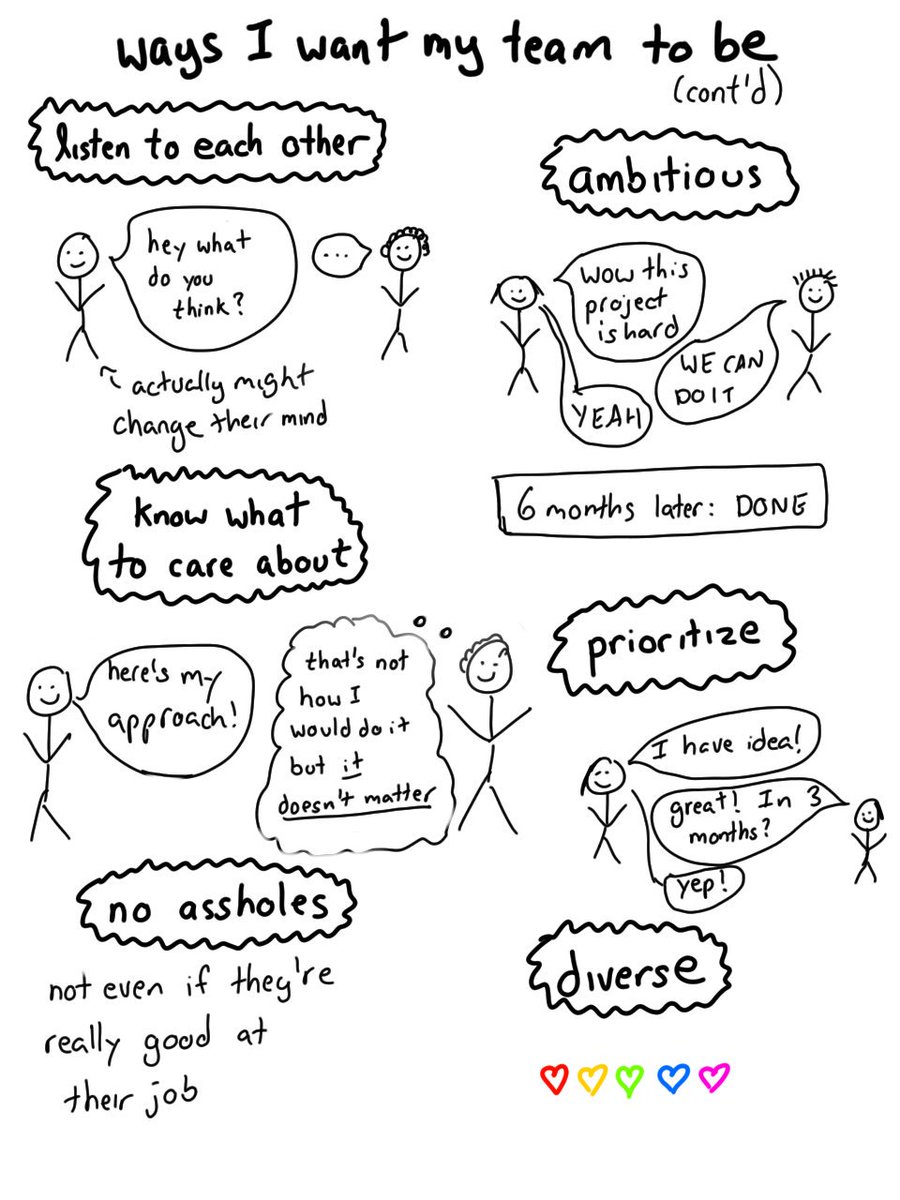 ways I want my team to be
(cont'd)
listen to each other
hey what
do you
think?
...
actually might
change their mind
ambitious
wow this
project
is hard
WE CAN
DO IT
YEAH
6 months later: DONE
know what
to care about
here's my
approach!
that's not
how I
would do it
but it
doesn't matter
prioritize
I have idea!
great! In 3
months?
yep!
no assholes
not even if they're
really good at
their job
diverse